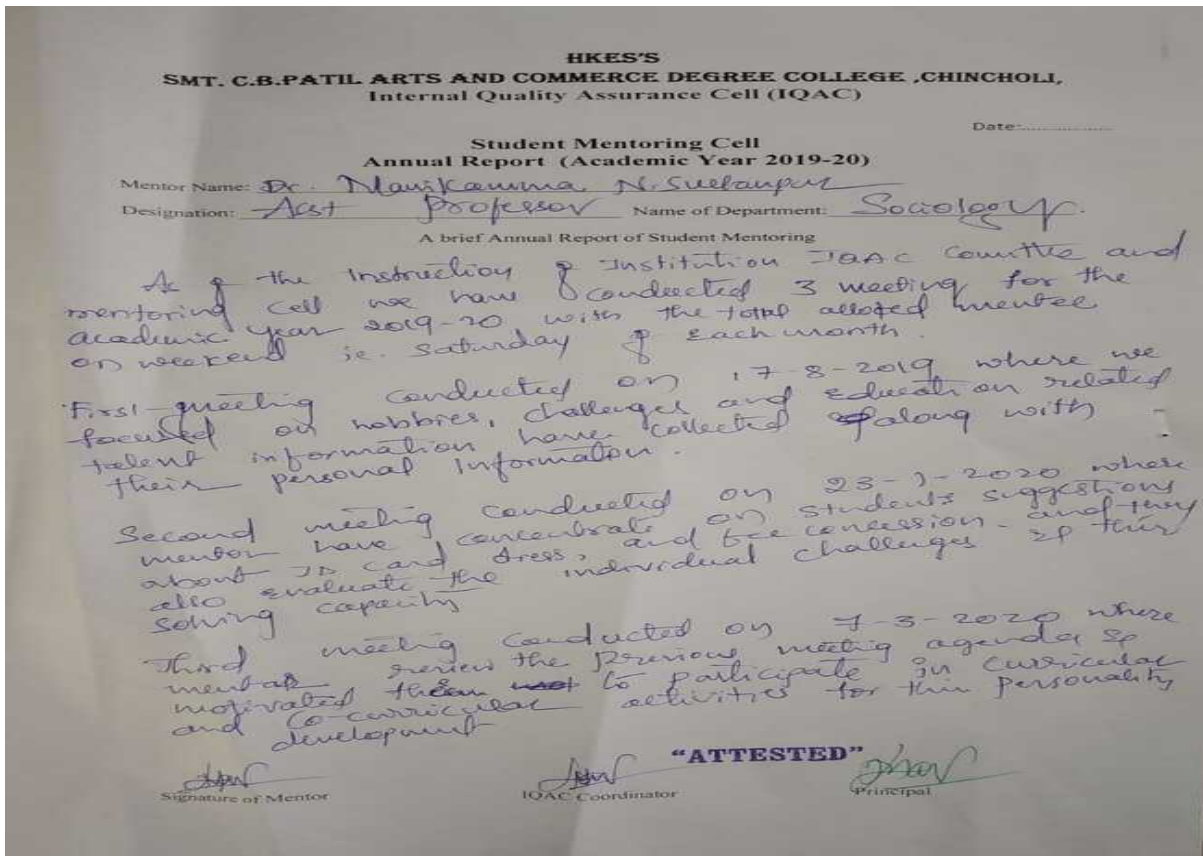 HKES'S
SMT. C.B.PATIL ARTS AND COMMERCE DEGREE COLLEGE ,CHINCHOLI,
Internal Quality Assurance Cell (IQAC)
Date:.................
Student Mentoring Cell
Annual Report (Academic Year 2019-20)
Mentor Name: Dr. Manikamma N. Sullanpur
Designation: Asst Professor Name of Department: Sociology.
A brief Annual Report of Student Mentoring
the Instruction Institution IQAC Committe and
mentoring Cell we have conducted 3 meeting for the
academic year 2019-20 with the total alloted mentee
on weekend ie. Saturday of each month.
First meeting conducted on 17-8-2019 where we
focused on hobbies, challenges and education related
telent information have collected along with
their personal Information.
Second meetig conducted on 23-1-2020 where
mentor have concentrate on students suggestions
about ID card dress, and fee concession. and they
also evaluate the individual challenges their
solving capacity
Third meeting conducted on 7-3-2020 where
review the previous meetig agenda
motivated them to participate in curricular
and Co-curricular activities for their personality
development
"ATTESTED"
Signature of Mentor IQAC Coordinator Principal